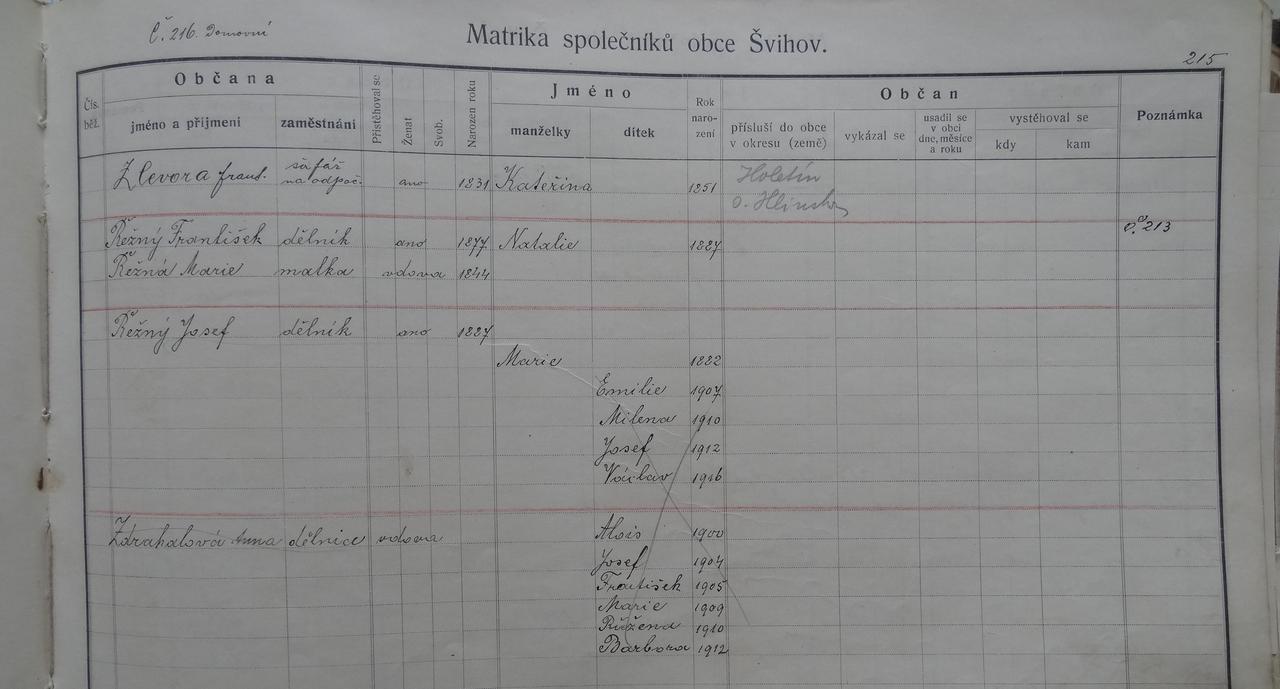 Č. 216. Domovní
Matrika společníků obce Švihov.
215
Čís. běž.
Občana
jméno a příjmení
zaměstnání
Přistěhoval se
Ženat
Svob.
Narozen roku
Jméno
manželky
dítek
Rok naro- zení
Občan
přísluší do obce v okresu (země)
vykázal se
usadil se v obci dne, měsíce a roku
vystěhoval se
kdy
kam
Poznámka
Zlevora frant. šafář na odpoč. ano 1831 Kateřina 1851 Holetín
o. Hlinsko
Řežný František dělník ano 1877 Natalie 1887 č. 213
Řežná Marie matka vdova 1844
Řežný Josef dělník ano 1887
Marie 1882
Emilie 1907
Milena 1910
Josef 1912
Václav 1916
Zdrahalová Anna dělnice vdova Alois 1900
Josef 1904
František 1905
Marie 1909
Růžena 1910
Barbora 1912